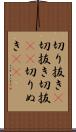 切り抜き
切抜き切抜
切りぬ
き